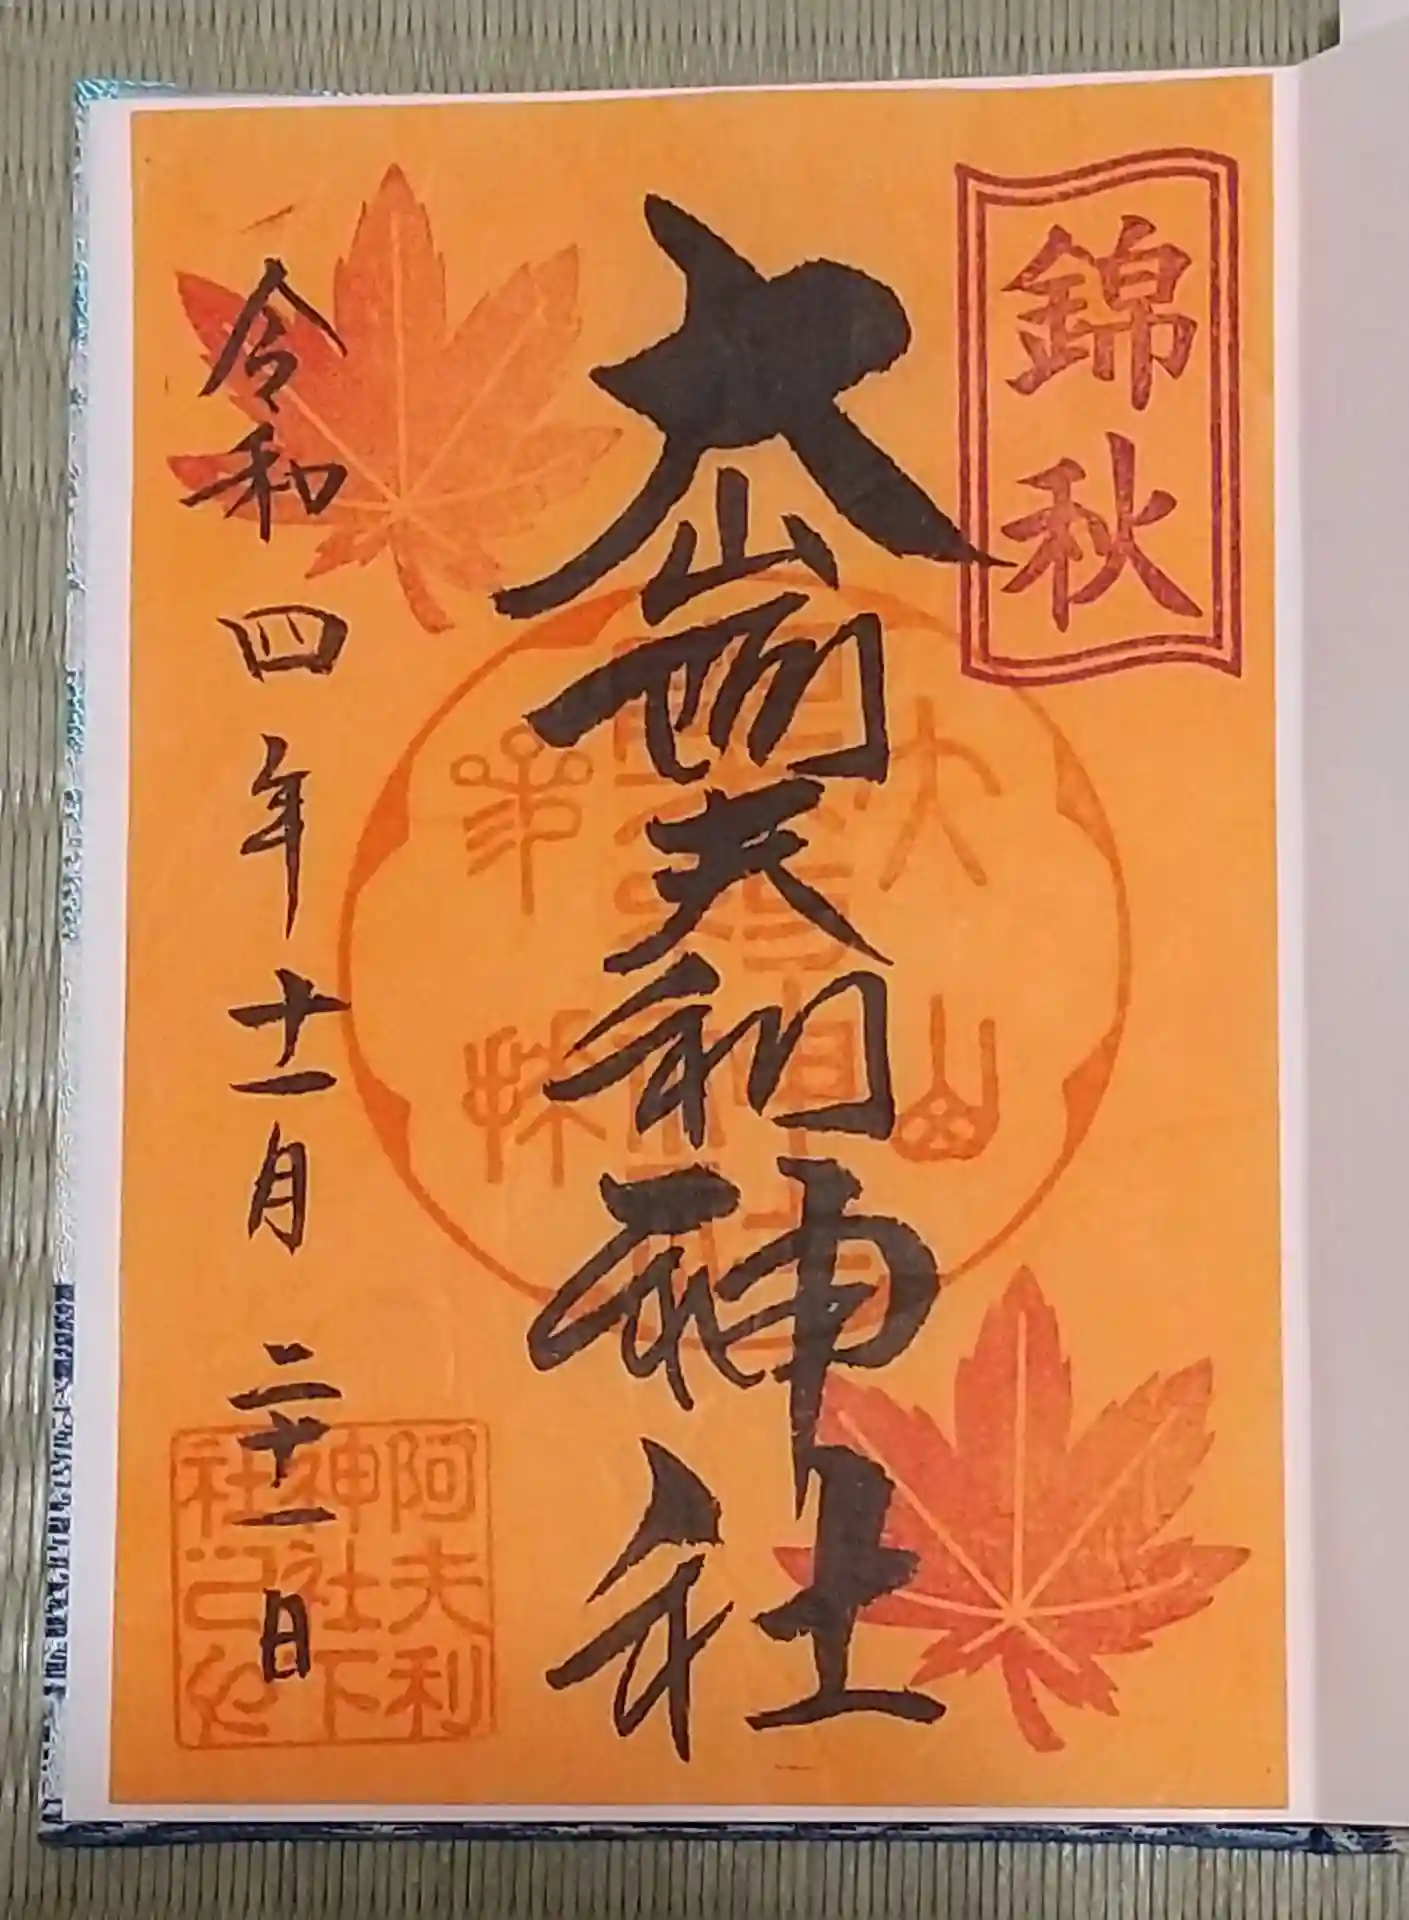 錦秋
大山阿夫利神社
大山
令和四年十一月二十一日
阿夫利
神社下
社